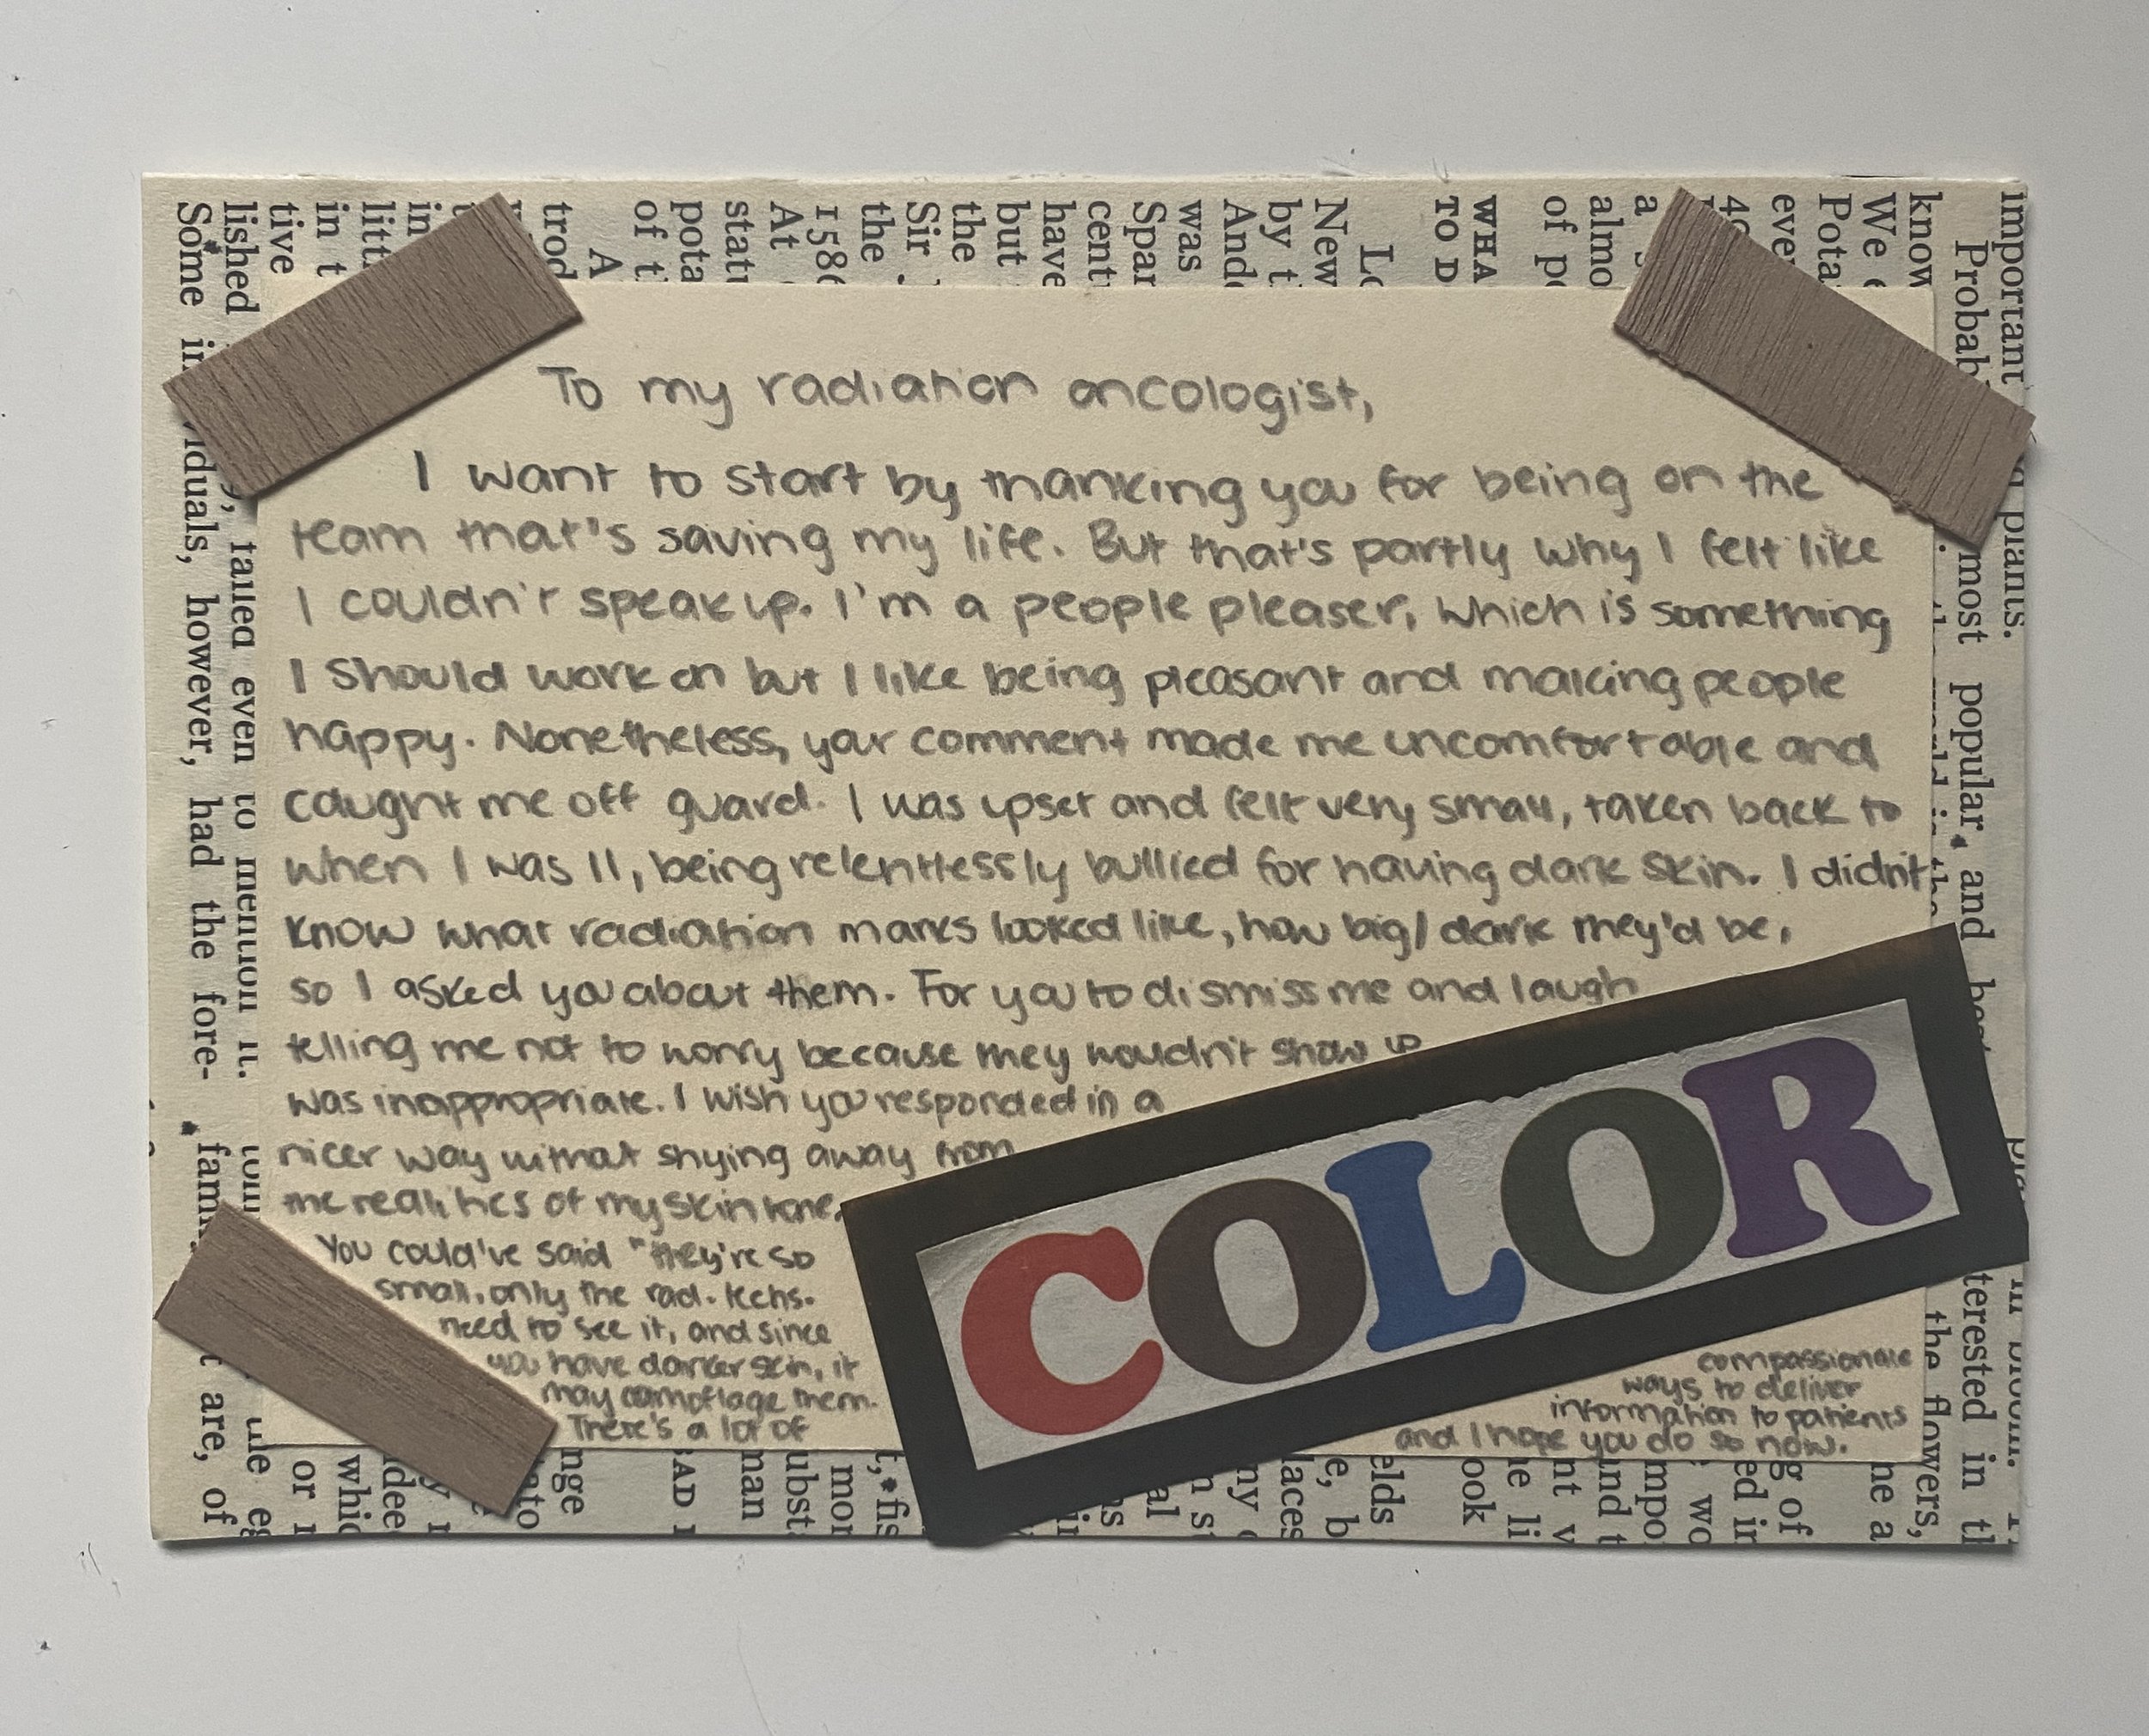 To my radiation oncologist,
I want to start by thanking you for being on the
team that's saving my life. But that's partly why I felt like
I couldn't speak up. I'm a people pleaser, which is something
I should work on but I like being pleasant and making people
happy. Nonetheless, your comment made me uncomfortable and
caught me off guard. I was upset and felt very small, taken back to
when I was 11, being relentlessly bullied for having dark skin. I didn't
know what radiation marks looked like, how big/dark they'd be,
so I asked you about them. For you to dismiss me and laugh
telling me not to worry because they wouldn't show up
was inappropriate. I wish you responded in a
nicer way without shying away from
the realities of my skin tone.
You could've said "they're so
small, only the rad. techs.
need to see it, and since
you have darker skin, it
may camoflage them.
There's a lot of
compassionate
ways to deliver
information to patients
and I hope you do so now.
COLOR
important
Probab
most popular, and
plants.
know
We
Pota
ever
a
almo
of po
WHA
TO D
Lo
New
by t
And
was
Spar
cent
have
but
the
Sir
the
158
At
stat
pota
of t
A
trod
in
litt
in t
tive
lished
failed even to mention it.
Some
viduals, however, had the fore-
are, of
or
whic
dee
nge
man
ubst
mor
fis
ny
laces
e, b
elds
ook
e li
nt
und t
mpo
wo
ed in
g of
the flowers,
terested in